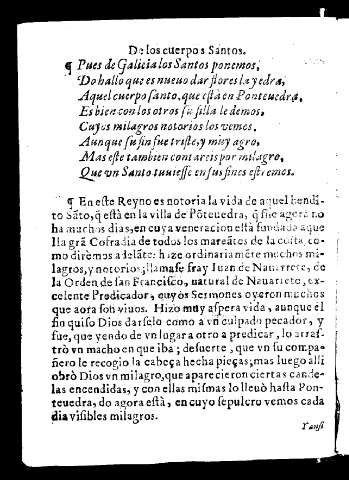 De los cuerpos Santos.
¶ Pues de Galicia los Santos ponemos,
Do hallo que es nueuo dar flores la yedra,
Aquel cuerpo santo, que està en Ponteuedra,
Es bien con los otros su silla le demos,
Cuyos milagros notorios los vemos.
Aunque su fin fue triste, y muy agro,
Mas este tambien contareis por milagro,
Que vn Santo tuuiesse en sus fines estremos.
¶ En este Reyno es notoria la vida de aquel bendi-
to Sãto, q̃ està en la villa de Põteuedra, q̃ fue agora no
ha muchos dias, en cuya veneracion està fundada aque
lla grã Cofradia de todos los mareãtes de la costa, co-
mo dirèmos adelãte: haze ordinariamẽte muchos mi-
lagros, y notorios; llamase fray Iuan de Nauarrete, de
la Orden de san Francisco, natural de Nauarrete, ex-
celente Predicador, cuyos Sermones oyeron muchos
que aora son viuos. Hizo muy aspera vida, aunque el
fin quiso Dios darselo como a vn culpado pecador, y
fue, que yendo de vn lugar a otro a predicar, lo arras-
trò vn macho en que iba; de suerte, que vn su compa-
ñero le recogio la cabeça hecha pieças; mas luego alli
obrò Dios vn milagro, que aparecieron ciertas cande-
las encendidas, y con ellas mismas lo lleuò hasta Pon-
teuedra, do agora està, en cuyo sepulcro vemos cada
dia visibles milagros.
Y ansi